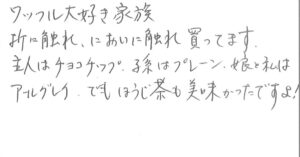 ワッフル大好き家族
折に触れ、においに触れ買ってます。
主人はチョコチップ、孫はプレーン、娘と私は
アールグレイ、でも ほうじ茶も美味かったですよ!